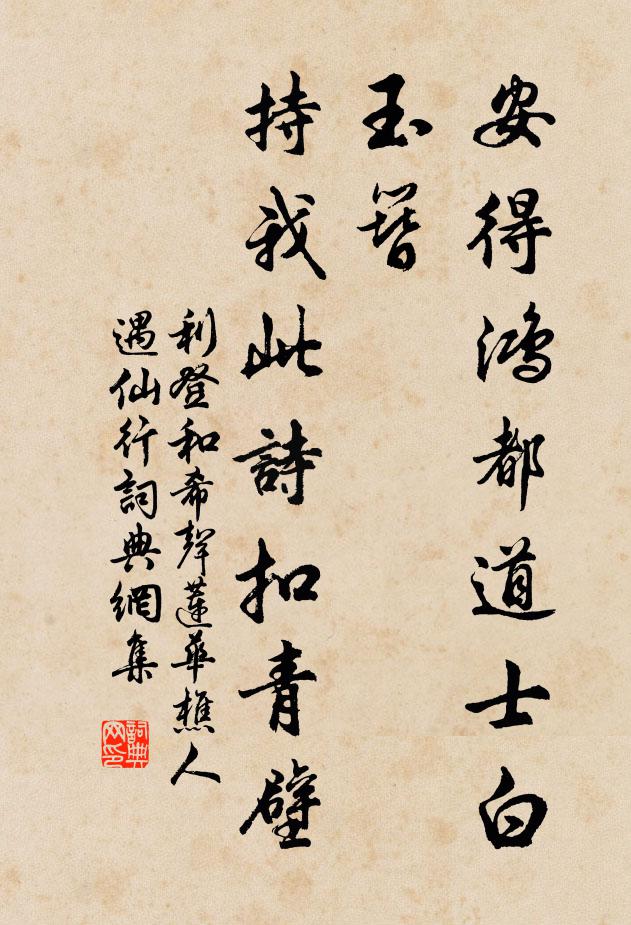 安得鴻都道士白
玉簪
持我此詩扣青壁
利登和希聲蓮華樵人
遇仙行詞典網集
詞典網印